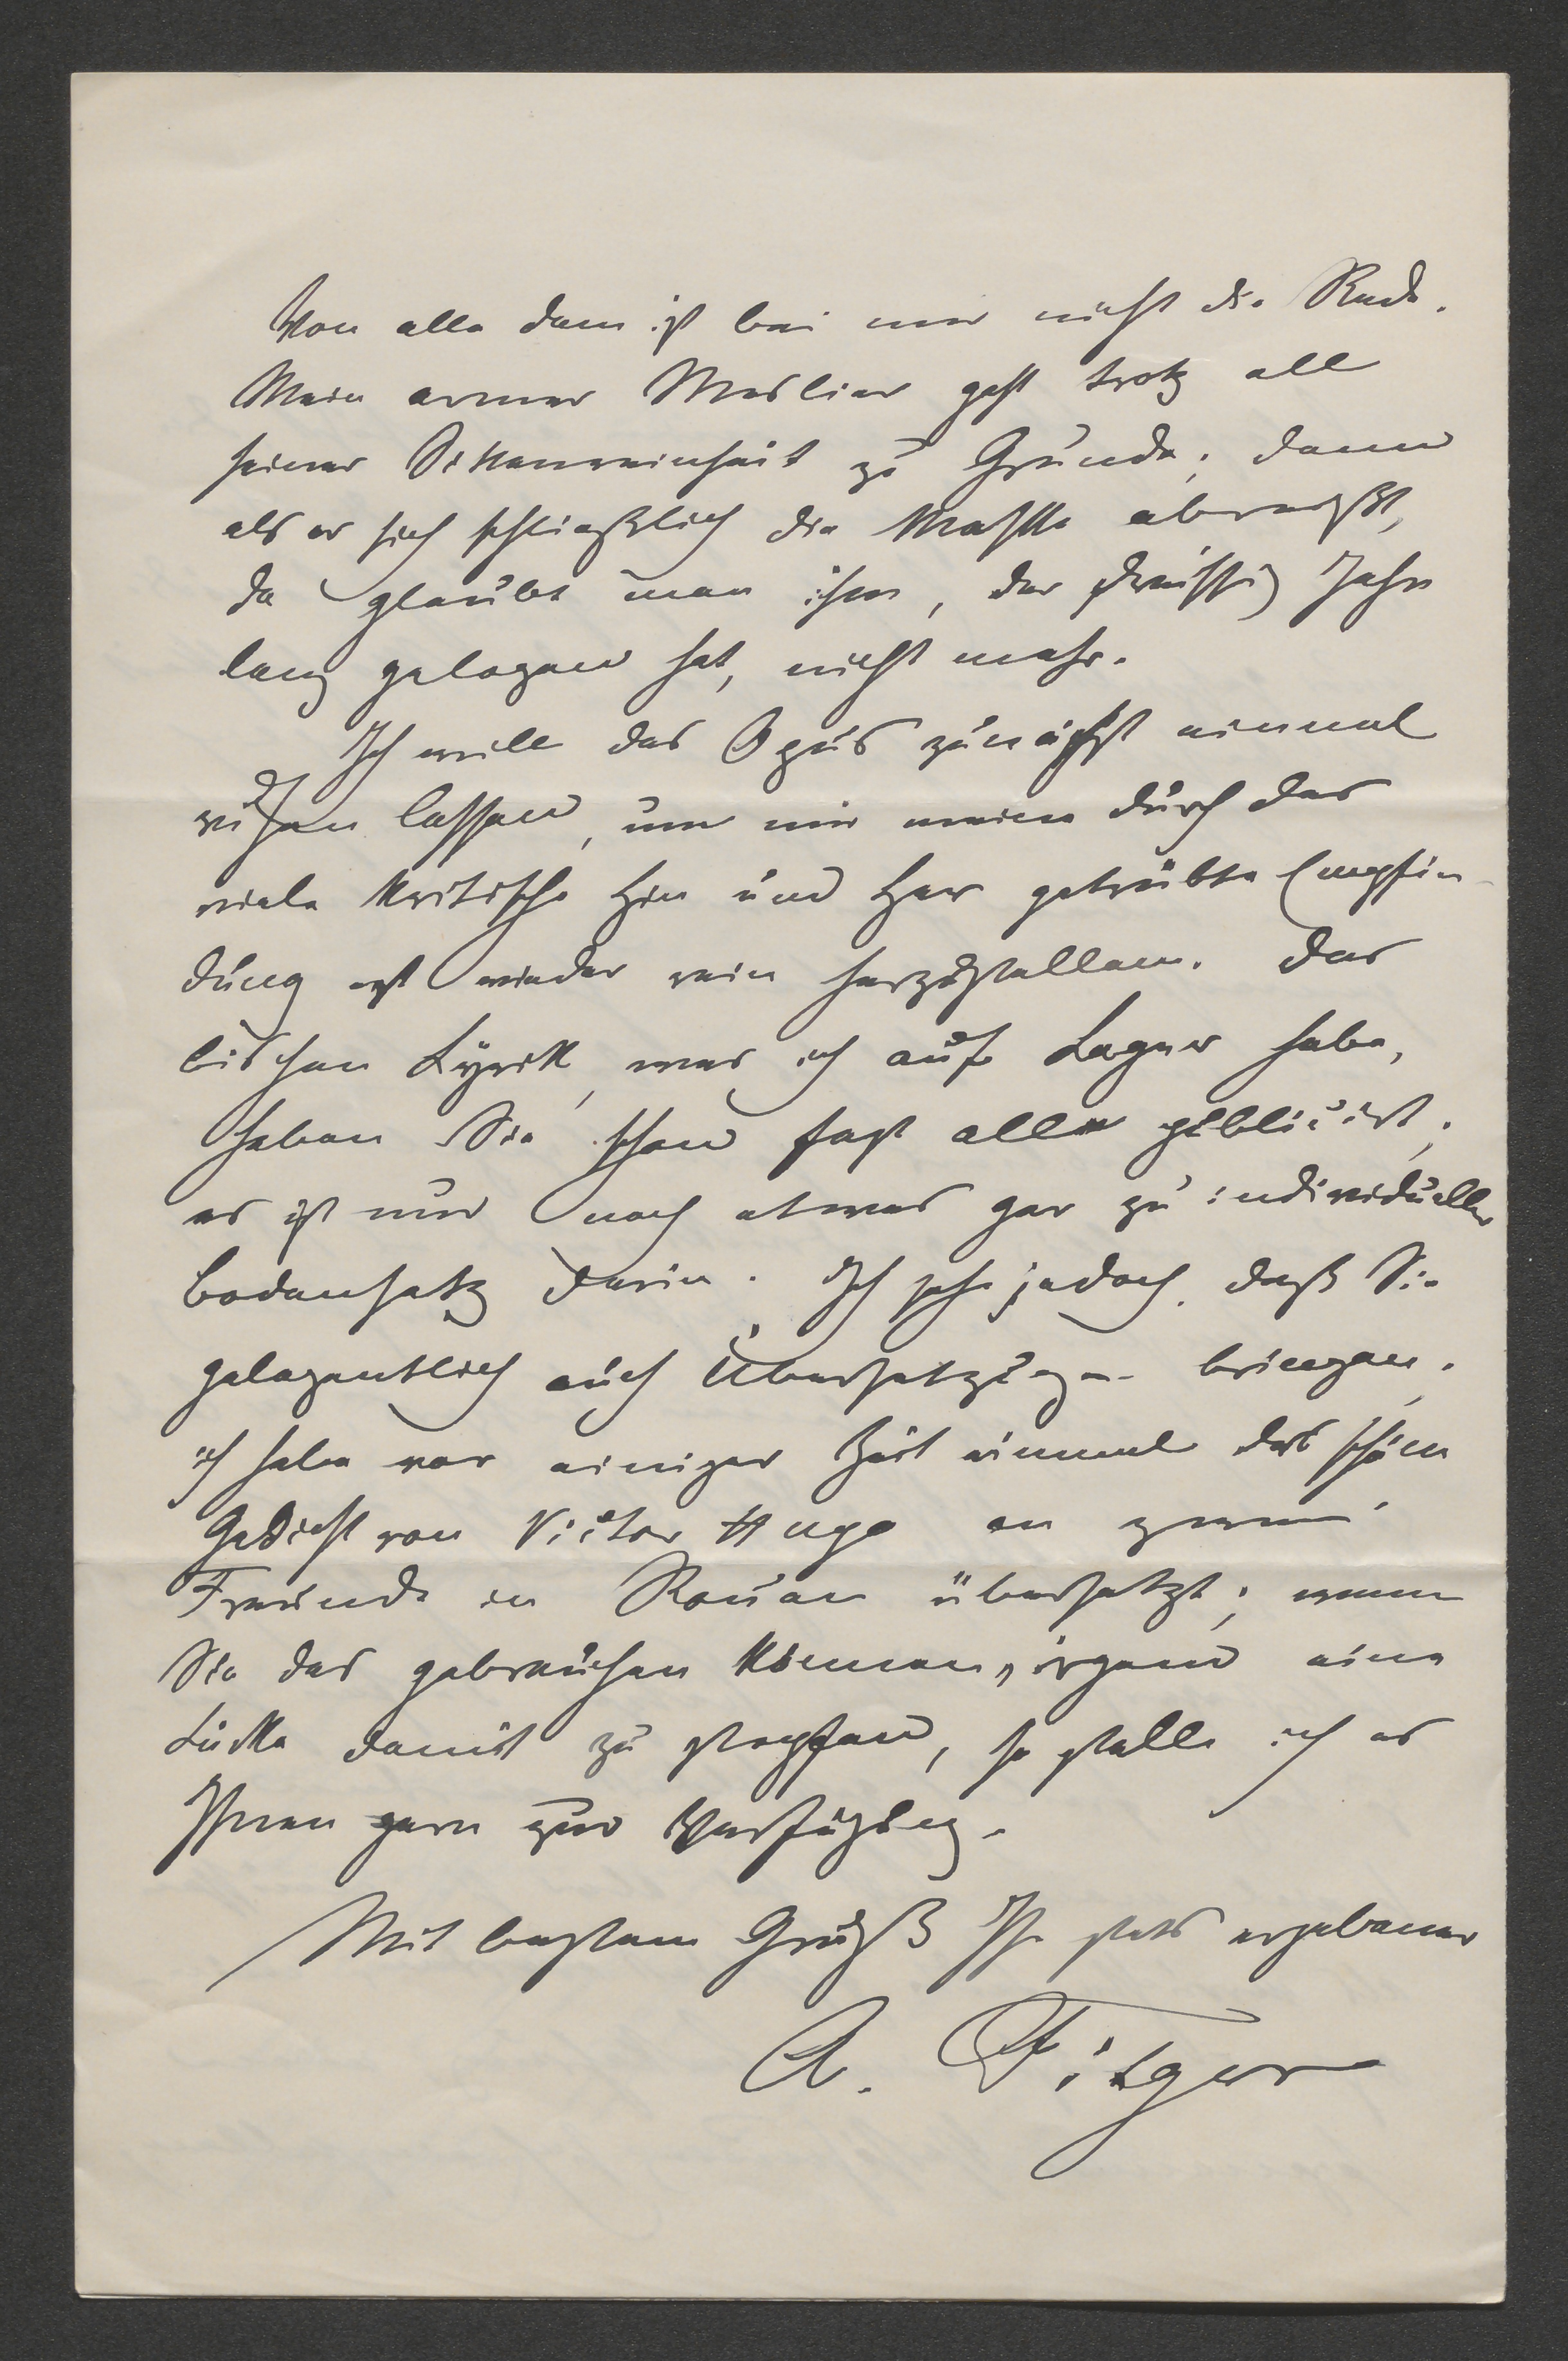 Von alle dem ist bei mir nicht die Rede.
Mein armer Meslier geht trotz all
seiner Sittenreinheit zu Grunde; denn
als er sich schließlich die Maske abreißt,
da glaubt man ihm, der dreißig Jahre
lang gelogen hat, nicht mehr.
Ich will das Opus zunächst einmal
ruhen lassen, um mir meine durch das
viele kritische Hin und Her getrübte Empfin-
dung erst wieder rein herzustellen. Das
bischen Lyrik, was ich auf Lager habe,
haben Sie schon fast alle publicirt;
es ist nur noch etwas gar zu individueller
Bodensatz darin. Ich sehe jedoch, daß Sie
gelegentlich auch Übersetzungen bringen;
ich habe vor einiger Zeit einmal das schöne
Gedicht von Victor Hugo an zwei
Freunde in Rouen übersetzt; wenn
Sie das gebrauchen können, irgend eine
Lücke damit zu stopfen, so stelle ich es
Ihnen gern zur Verfügung.
Mit bestem Gruß Ihr stets ergebener
A. Fitger